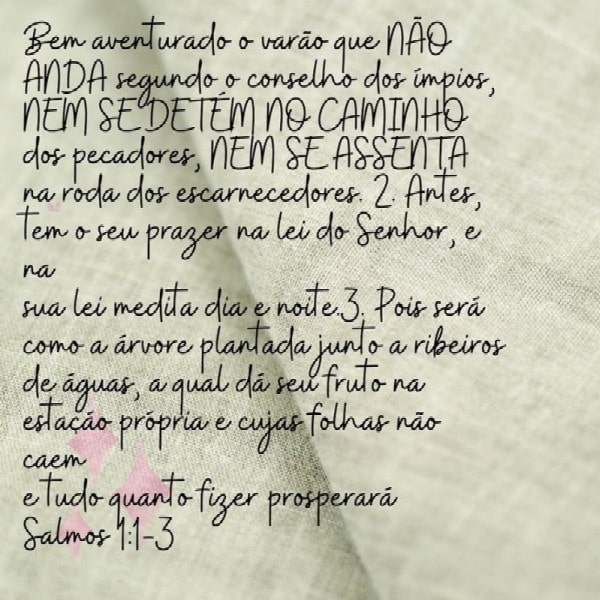 Bem aventurado o varão que NÃO
ANDA segundo o conselho dos ímpios,
NEM SE DETÉM NO CAMINHO
dos pecadores, NEM SE ASSENTA
na roda dos escarnecedores. 2. Antes,
tem o seu prazer na lei do Senhor, e
na
sua lei medita dia e noite.3. Pois será
como a árvore plantada junto a ribeiros
de águas, a qual dá seu fruto na
estação própria e cujas folhas não
caem
e tudo quanto fizer prosperará
Salmos 1:1-3